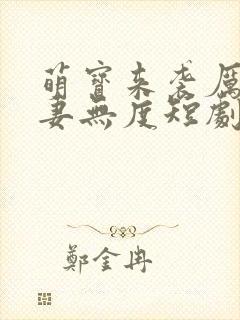 萌寶來袭厲
妻無度短劇
鄭金冉